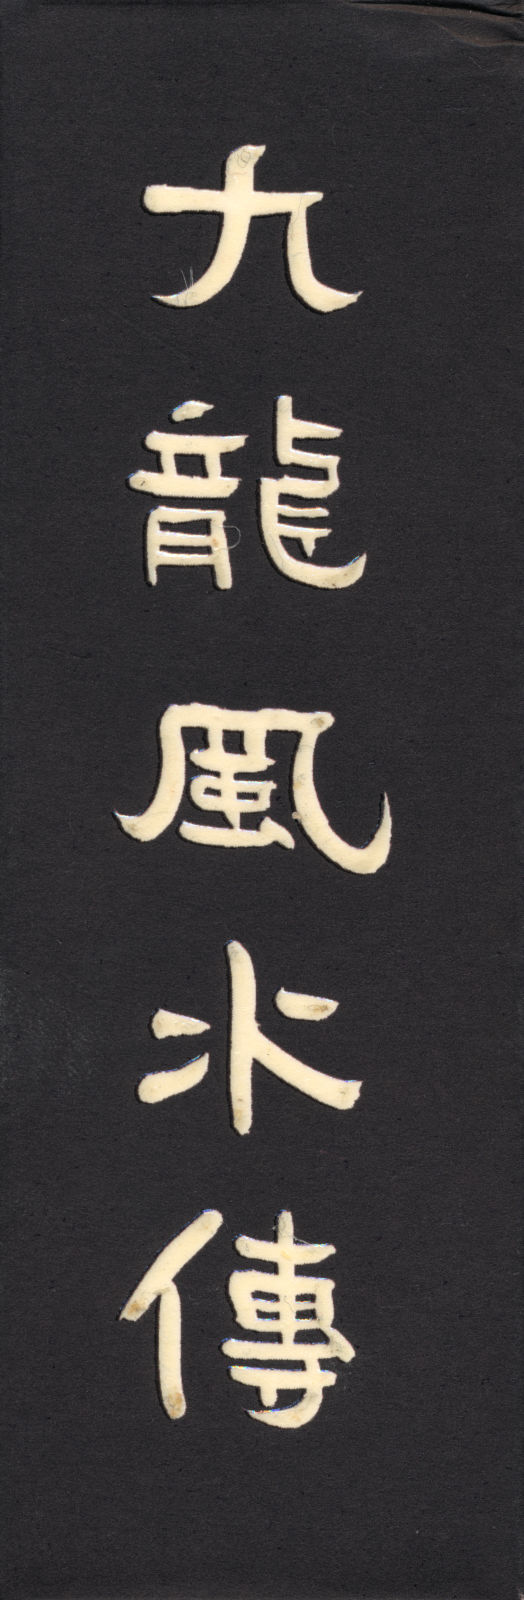 九龍風水傳